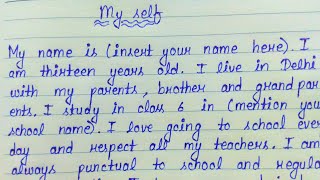 My self
My name is (insert your name here). I
am thirteen years old. I live in Delhi
with my parents, brother and grand par
ents. I study in class 6 in (mention your
school name). I love going to school ever
day and respect all my teachers. I am
always punctual to school and regula